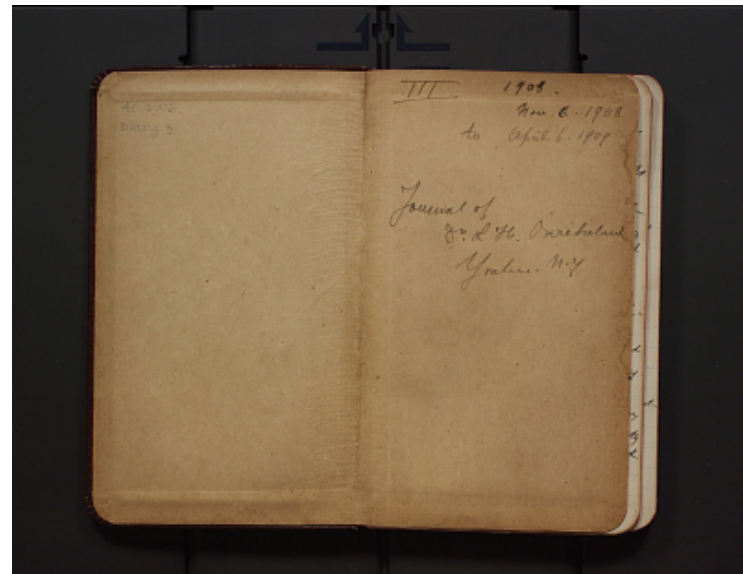 Diary 3
III 1908.
Nov. 6. 1908
to April 6. 1909
Journal of
Dr. L H. Baekeland
Yonkers. N.Y